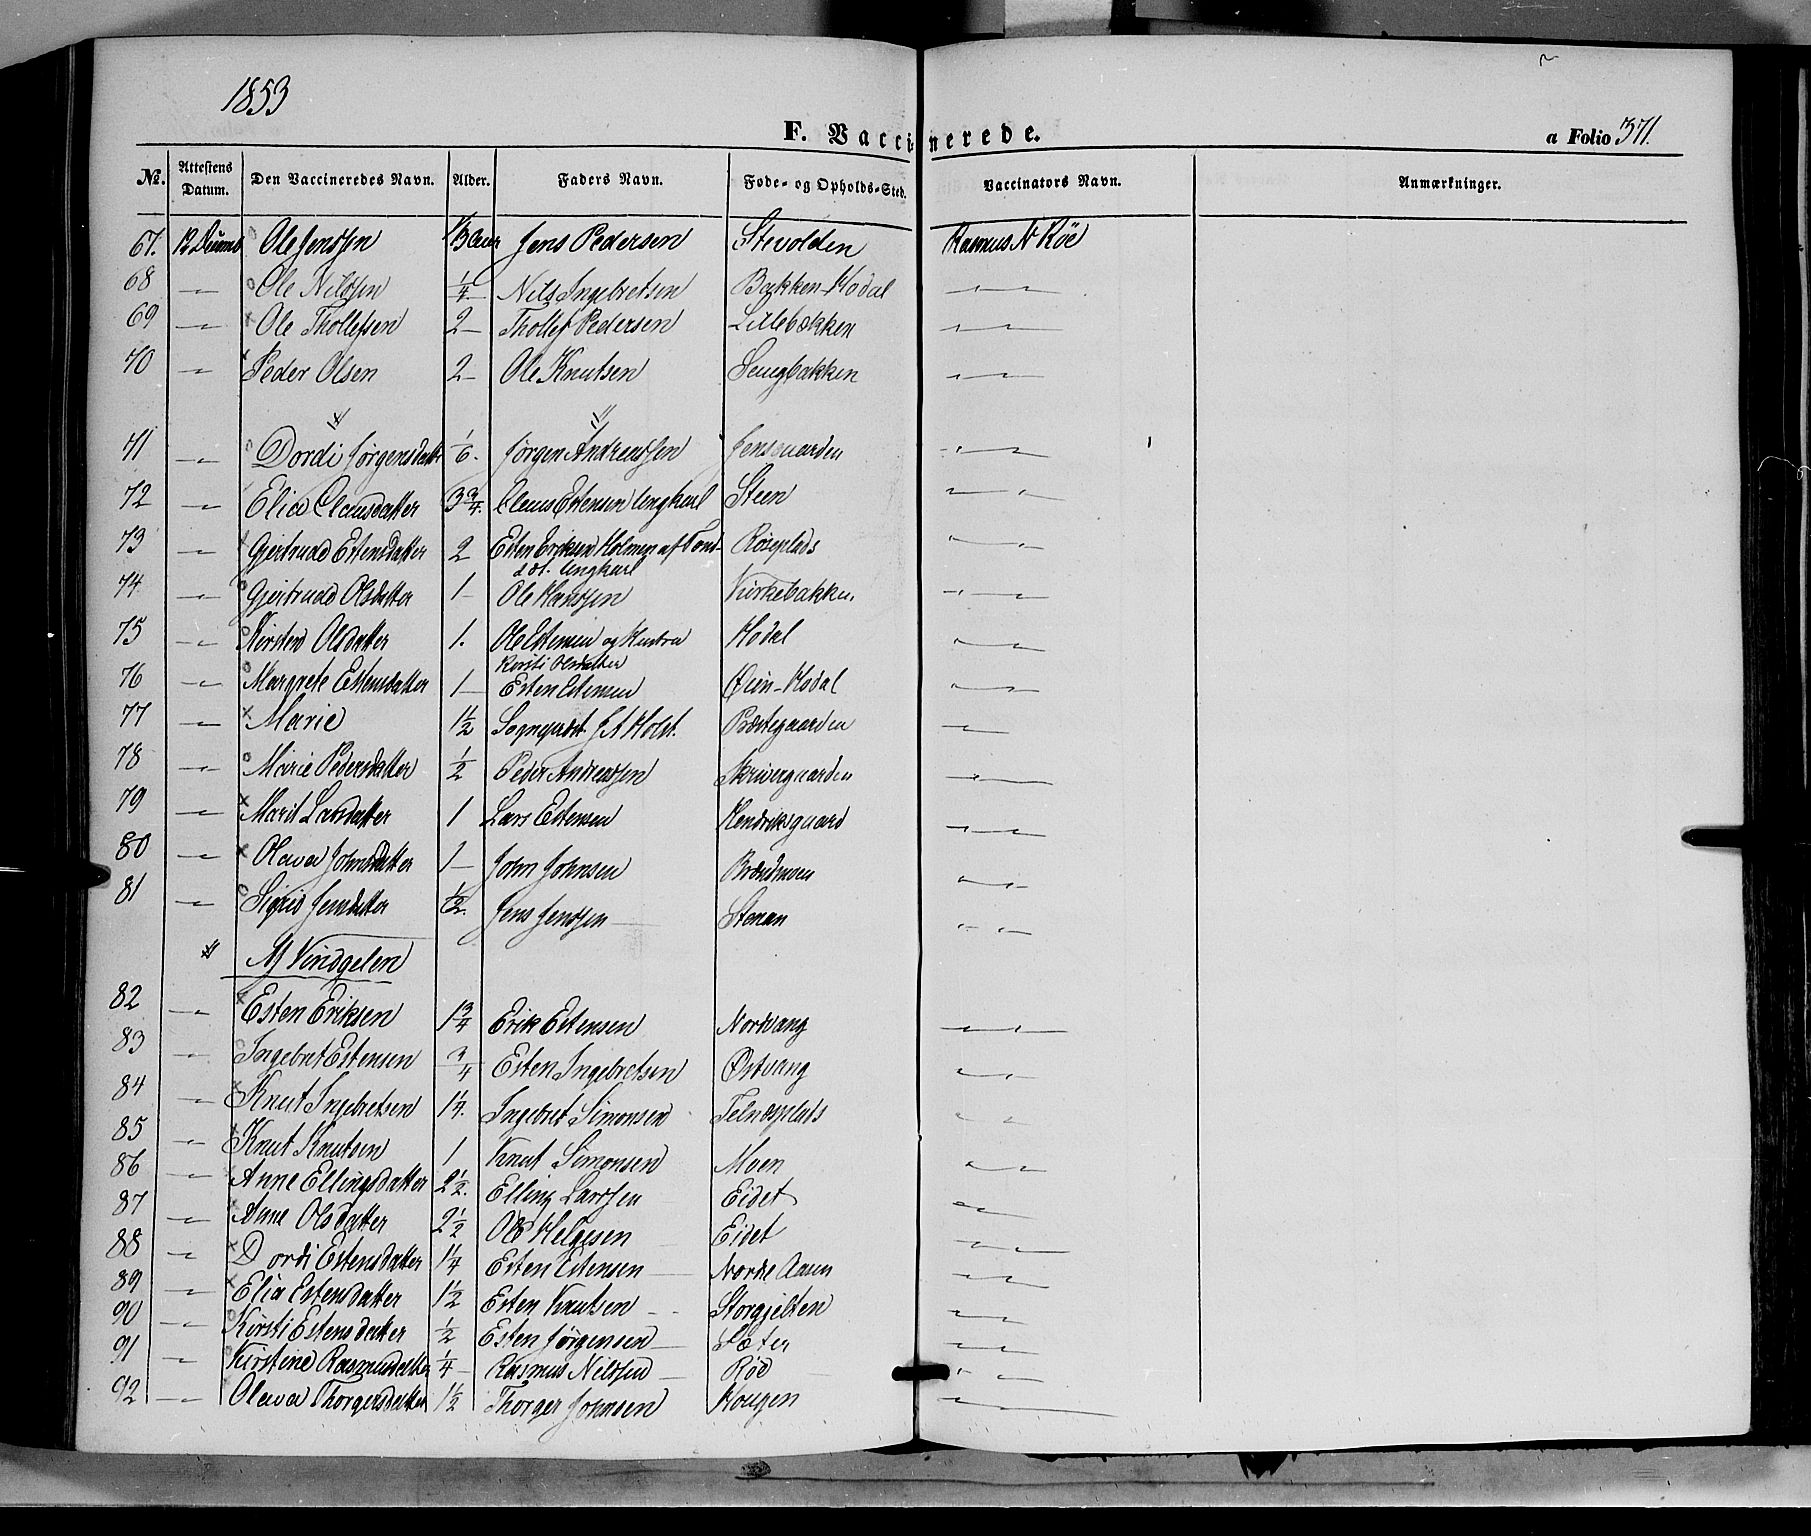 1853
F. Vaccinerede.
a Folio 371.
No. Attestens Datum. Den Vaccineredes Navn. Alder. Faders Navn. Føde- og Opholds-Sted. Vaccinators Navn. Anmærkninger.
67. Ole Jenssen 1/3 Aar Jens Pedersen Stevolden Rasmus N Röe
68 — Ole Nilssen 1/4 Nils Ingebretsen Bakken-Hodal — —
69 — Ole Thollefsen 2 — Thollef Pedersen Lillebækken — —
70 — Peder Olsen 2 — Ole Knutsen — —
71 — Dordi Jørgensdatter 1/6. Jørgen Andreassen Jensgaarden — —
72 — Elia Clausdatter 3 3/4. Claus Estensen Ungkarl Steen — —
73 — Gjertrud Estensdatter 2 Esten Eriksen Holmen af Tønd- Røseplads — —
sæt. Ungkarl
74 — Gjertrud Olsdatter 1 — Ole Hanssen Kirkebakken — —
75 — Kirsten Olsdatter 1. Ole Estensen og Hustru Hodal — —
Kersti Olsdatter
76 — Margrete Estensdatter 1 — Esten Estensen Øien-Hodal — —
77 — Marie 1 1/2 Sognepræst J A Holst. Præstegaarden —
78 — Marie Pedersdatter 1/2 Peder Andreassen Skrivergaarden — —
79 — Marit Larsdatter 1 Lars Estensen Hendriksgaard — —
80 — Olava Johnsdatter 1 — John Johnsen Brændmoen — —
81 — Sigrid Jensdatter 1/2. Jens Jenssen — Stenan — —
Af Vindgelen
82 — Esten Eriksen 1 3/4 Erik Estensen Nordvang — —
83 — Ingebret Estensen 3/4 Esten Ingebretsen Østvang — —
84 — Knut Ingebretsen 1 1/2. Ingebret Simonsen Telnesplads — —
85 — Knut Knutsen 1 Knut Simonsen Moen — —
86 — Anne Ellingsdatter 2 1/2. Elling Larssen Eidet —
87 — Anne Olsdatter 2 1/2 Ole Helgesen Eidet — —
88 — Dordi Estensdatter 1 1/4 Esten Estensen — Nordre Aaen — —
89 — Elia Estensdatter 1 1/2 Esten Knutsen — Storgjelten — —
90 — Kirsti Estensdatter 1/2 Esten Jørgensen — Sæter — —
91 — Kirstine Rasmusdatter 1/4 — Rasmus Nilssen — Røe — —
92 — Olava Thorgersdatter 1 1/2 Thorger Johnsen Hougen — —